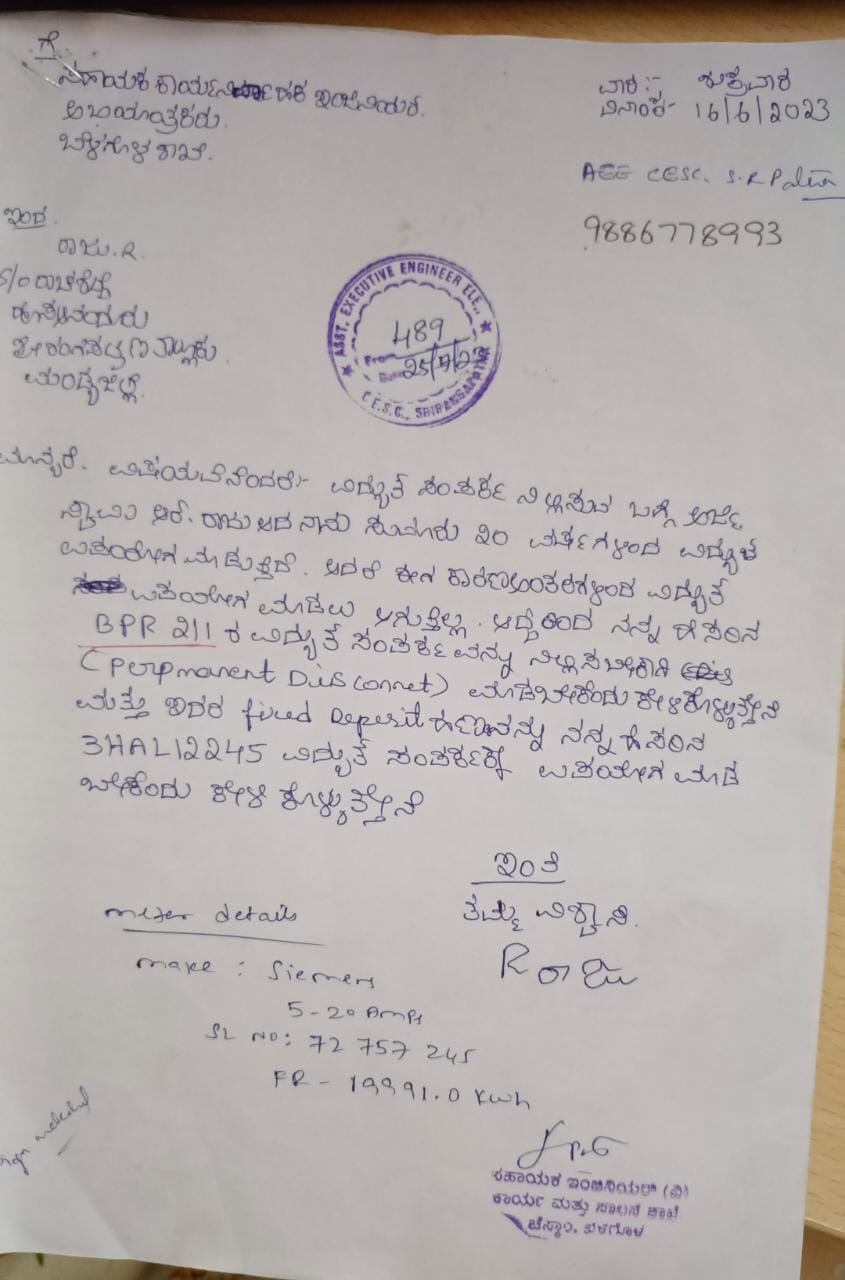 ಗೆ
ಸಹಾಯಕ ಕಾರ್ಯನಿರ್ವಾಹಕ ಇಂಜಿನಿಯರ್.
ಅಭಿಯಂತ್ರಕರು.
ಬೆಳಗೊಳ ಶಾಖೆ.
ವಾರ:- ಶುಕ್ರವಾರ
ದಿನಾಂಕ- 16/6/2023
AEE CESC. S.R Patna
9886778993
ಇಂದ.
ರಾಜು.R.
S/o
ಶ್ರೀರಂಗಪಟ್ಟಣ ತಾಲ್ಲೂಕು.
ಮಂಡ್ಯ ಜಿಲ್ಲೆ.
ASST. EXECUTIVE ENGINEER ELE.,
489
From
Date
C.E.S.C., SRIRANGAPATNA
ಮಾನ್ಯರೆ. ವಿಷಯವೆನೆಂದರೆ:- ವಿದ್ಯುತ್ ಸಂಪರ್ಕ ನಿಲ್ಲಿಸುವ ಬಗ್ಗೆ ಅರ್ಜಿ
ಸ್ವಾಮಿ ಆರ್. ರಾಜು ಆದ ನಾನು ಸುಮಾರು 20 ವರ್ಷಗಳಿಂದ ವಿದ್ಯುತ್
ಉಪಯೋಗ ಮಾಡುತ್ತಿದೆ. ಆದರೆ ಈಗ ಕಾರಣಾಂತರಗಳಿಂದ ವಿದ್ಯುತ್
ಉಪಯೋಗ ಮಾಡಲು ಆಗುತ್ತಿಲ್ಲ. ಆದ್ದರಿಂದ ನನ್ನ ಹೆಸರಿನ
BPR 211 ರ ವಿದ್ಯುತ್ ಸಂಪರ್ಕವನ್ನು ನಿಲ್ಲಿಸಬೇಕಾಗಿ
(Perpmanent Disconnet) ಮಾಡಬೇಕೆಂದು ಕೇಳಿಕೊಳ್ಳುತ್ತೇನೆ
ಮತ್ತು ಇದರ fixed Deposit ಹಣವನ್ನು ನನ್ನ ಹೆಸರಿನ
3HAL12245 ವಿದ್ಯುತ್ ಸಂಪರ್ಕಕ್ಕೆ ಉಪಯೋಗ ಮಾಡ
ಬೇಕೆಂದು ಕೇಳಿ ಕೊಳ್ಳುತ್ತೇನೆ
ಇಂತಿ
ತಮ್ಮ ವಿಶ್ವಾಸಿ.
Rರಾಜು
meter details
make : Siemens
5-20 Amps
SL NO: 72 757 245
FR - 19991.0 kwh
ಸಹಾಯಕ ಇಂಜಿನಿಯರ್ (ವಿ)
ಕಾರ್ಯ ಮತ್ತು ಪಾಲನೆ ಶಾಖೆ
ಚೆಸ್ಕಾಂ, ಬೆಳಗೊಳ